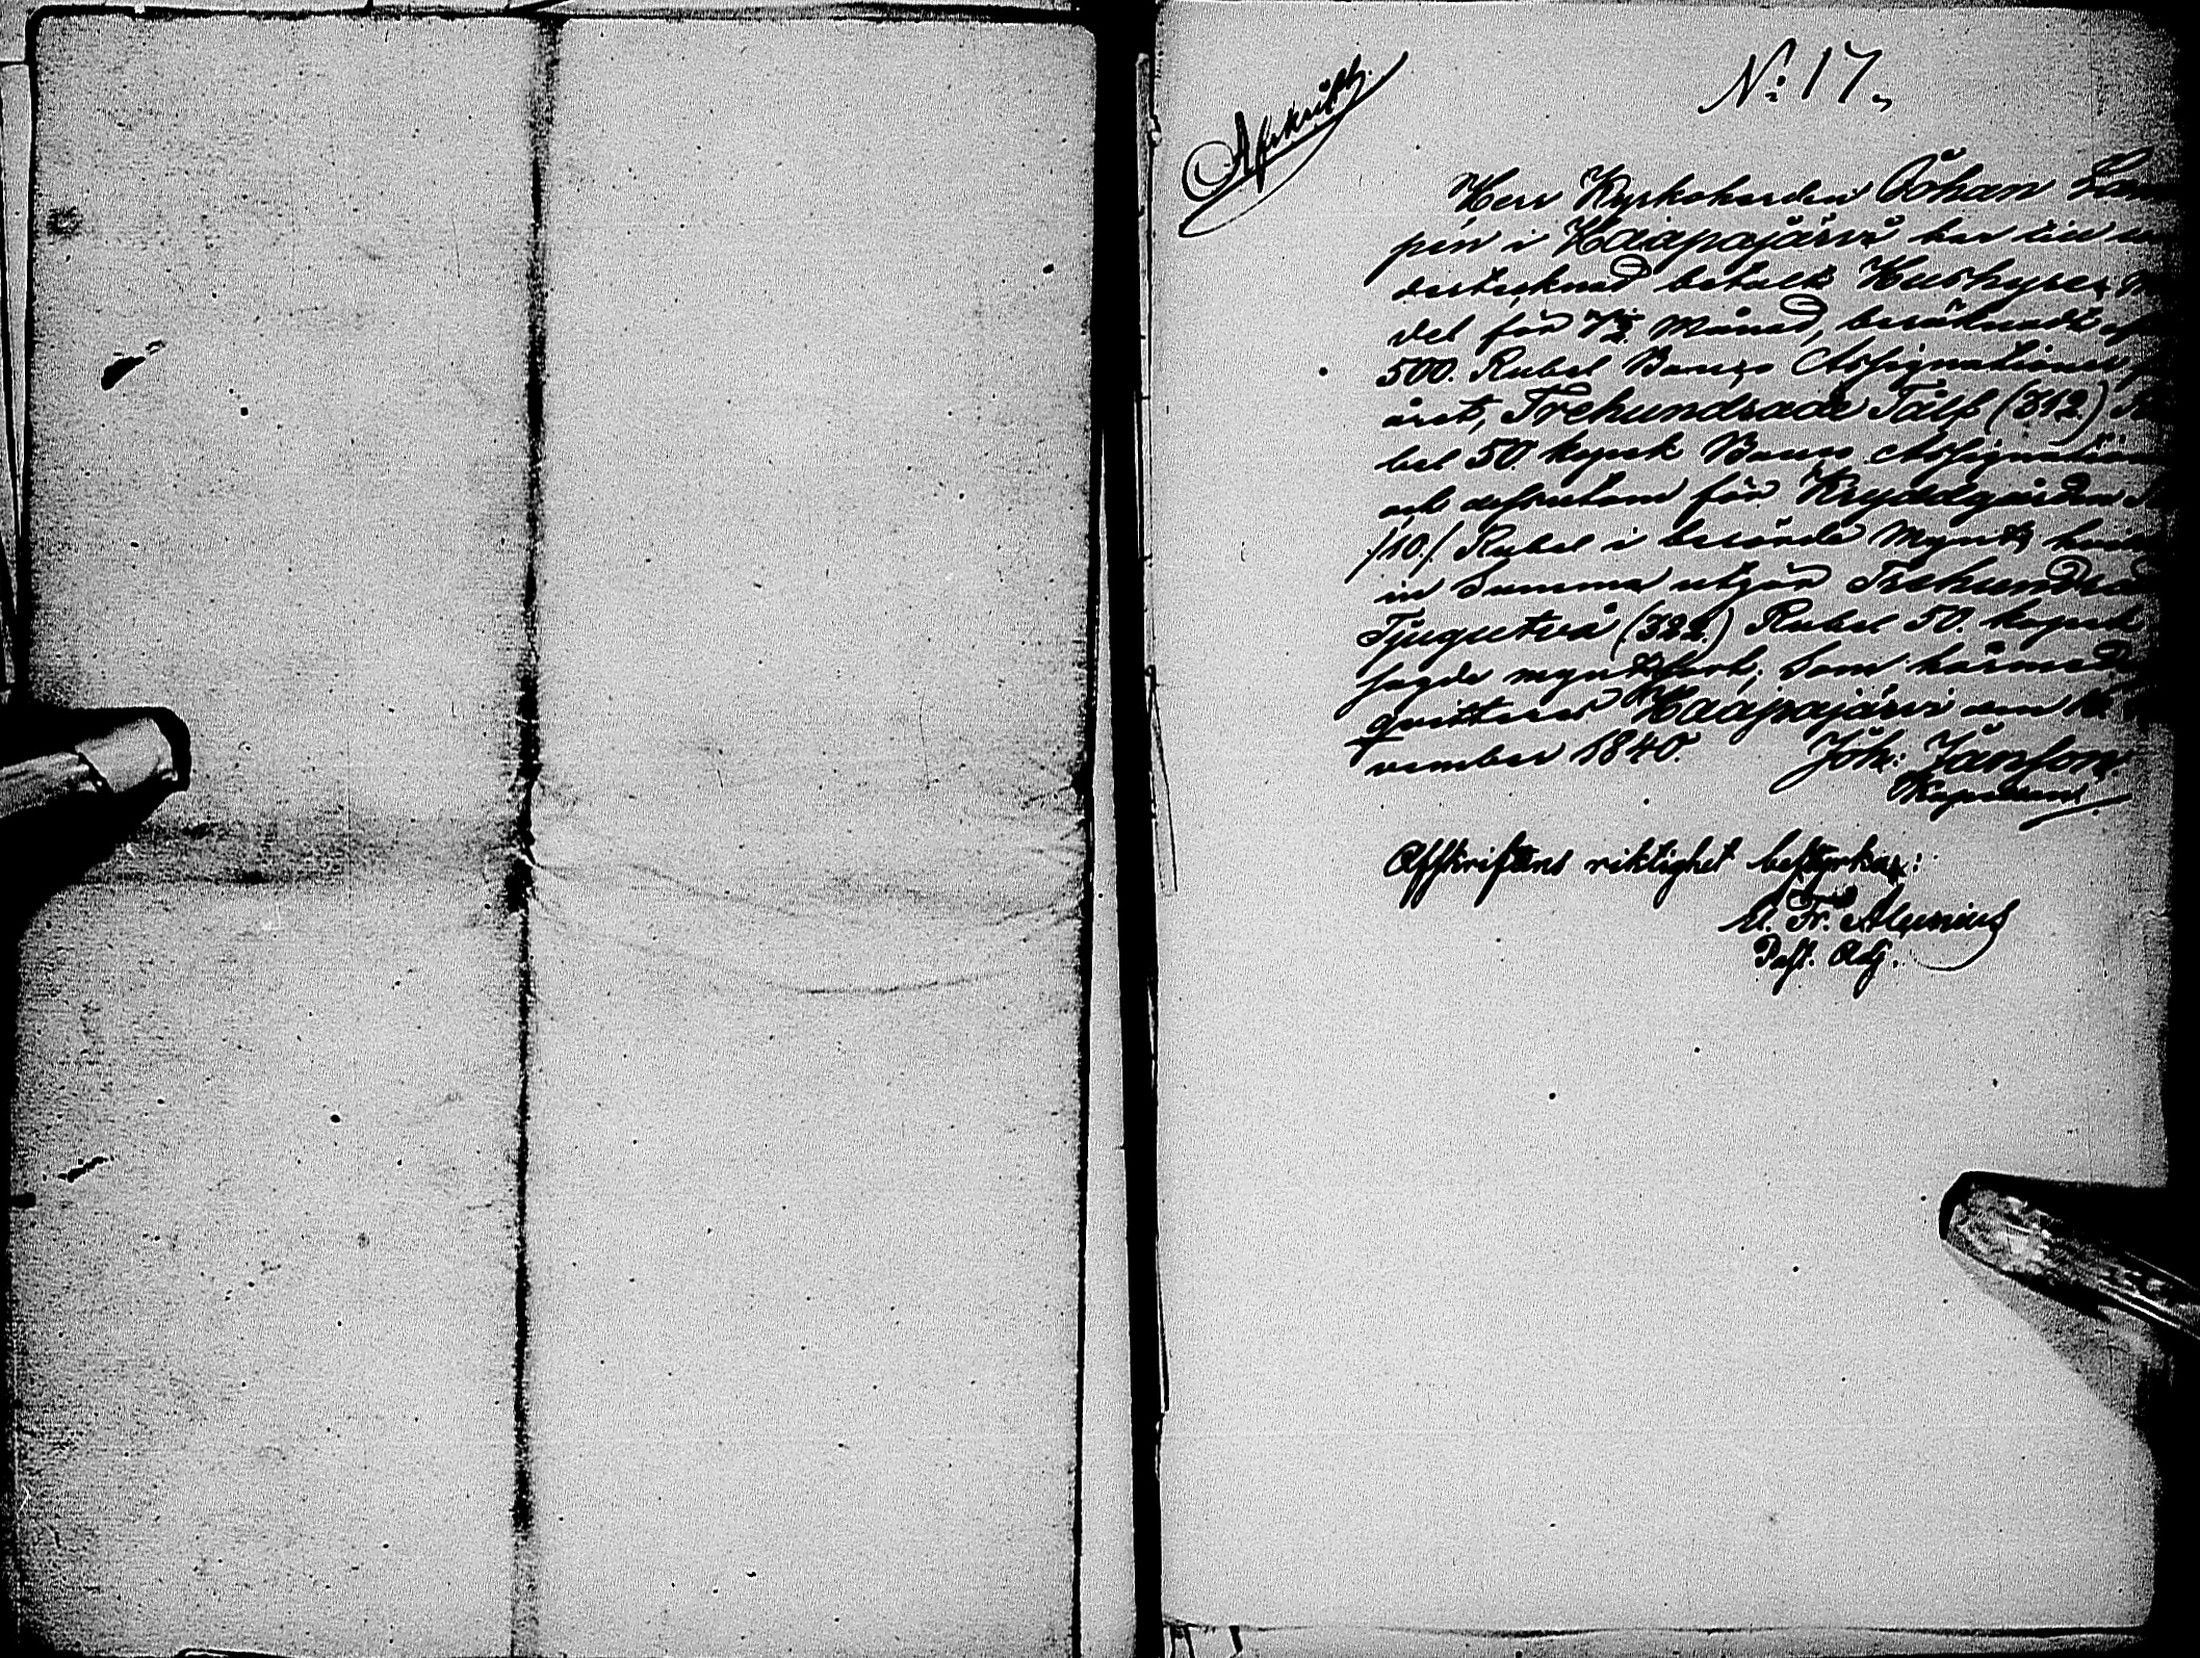 N:o 17.
Afskrift.
Herr Kyrkoherden Johan Lam
pén i Haapajärvi har till un
dertecknad betalt Hushyres me
del för 7½ Månad, beräknadt
500. Rubel Banco Assignationer
året, Trehundrade Tolf (312) Ru
bel 50 kopek Banco Assignationer
och dessutom för Kryddgården
/10./ Rubel i berörde Mynt,
in Summa utgör Trehundrade
Tjugutvå (322) Rubel 50. kopek
sagde myntsort; Som härmed
qvitteras Haapajärvi den 16. No
vember 1840. Joh: Janson.
Kopman.
Afskriftens riktighet bestyrkes:
Fr. Alcenius
Past. Adj.